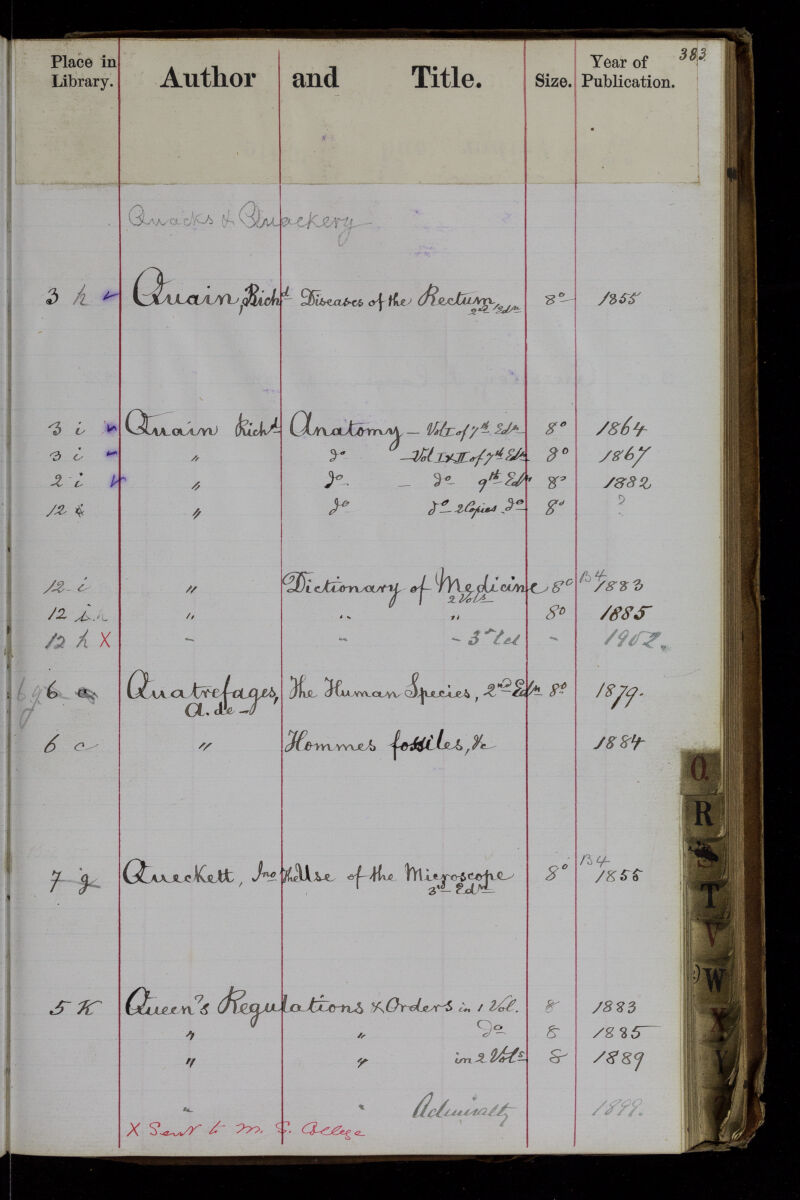 383
Place in Library. Author and Title. Size. Year of Publication.
Quacks & Quackery
3 h Quain, Richd Diseases of the Rectum 2nd Edn 8o 1855
3 i Quain Richd Anatomy – Vol I of 7th Edn 8o 1864
3 i " Do – Vol I & II of 7th Edn 8o 1867
2 i " Do – Do 9th Edn 8o 1882
12 " do do 2 Copies do 8o ?
12 i " Dictionary of Medicine 2 Vols 8o B4 1883
12 h " " " 8o 1885
12 h X – – – 3rd Ed – 1902.
6 Quatrefages, A. de – The Human Species, 2nd Edn 8o 1879.
6 c " Hommes fossiles, &c 1884
7 g Queckett, Jno The Use of the Microscope 3rd Edn 8o B4 1855
5 K Queen's Regulations & Orders in 1 Vol. 8 1883
" " Do 8 1885
" " in 2 Vols 8 1889
" " Admiralty 1899.
X Sent to M. S. College
Q
R
T
V
W
X
Y